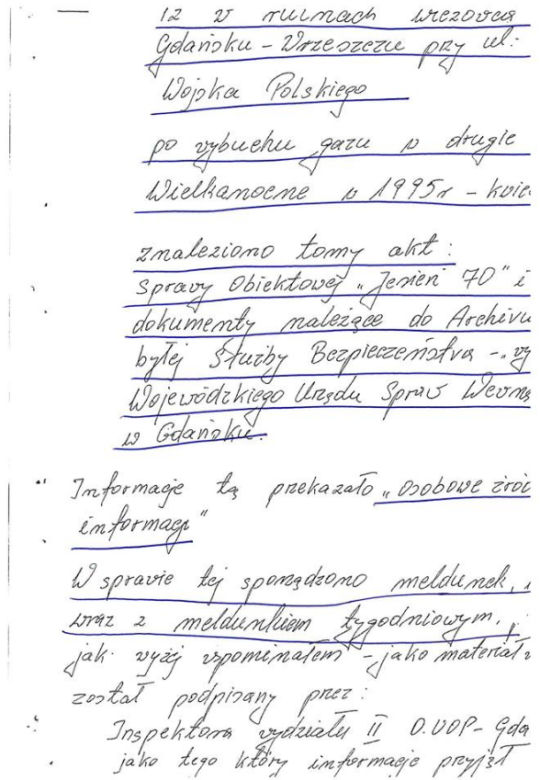 iż w ruinach wieżowca
Gdańsku - Wrzeszczu przy ul:
Wojska Polskiego
po wybuchu gazu w drugie
Wielkanocne w 1995r - kwie
znaleziono tomy akt :
Sprawy Obiektowej „Jesień 70" i
dokumenty należące do Archiwu
byłej Służby Bezpieczeństwa -
Wojewódzkiego Urzędu Spraw Wewnę
w Gdańsku.
" Informacje tą przekazało „osobowe źród
informacji"
W sprawie tej sporządzono meldunek,
wraz z meldunkiem tygodniowym,
jak wyżej wspominałem - jako materiał
został podpisany przez :
Inspektora wydziału II D.UOP - Gda
jako tego który informacje przyjął